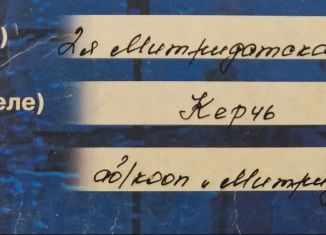 ) 2я Митридатска
еле) Керчь
о/кооп „Митри